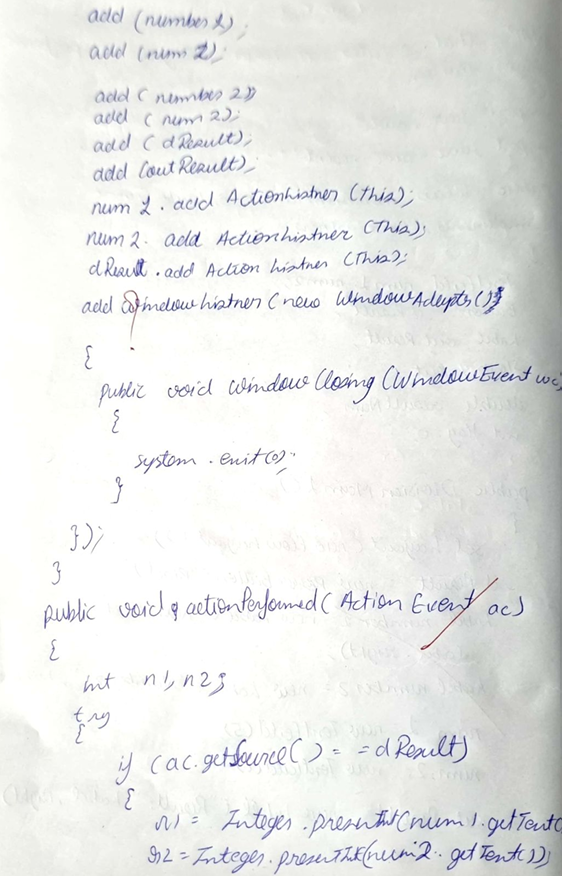 add (number 1);
add (num 1);
add ( number 2))
add ( num 2);
add ( dResult);
add (outResult);
num 1 . add ActionListner (this);
num 2 . add ActionListner (this);
dResult . add Action Listner (this);
add WindowListner ( new WindowAdepts()
{
public void window Closing (WindowEvent we)
{
system . exit(0);
}
});
}
public void actionPerformed( Action Event ac)
{
int n1, n2;
try
{
if (ac.getSource( ) = = dResult)
{
n1 = Integer . presentInt(num 1 . getText(
n2 = Integer . presentInt(num 2 . getText( ));